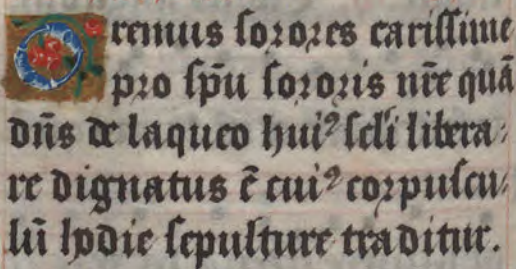 Oremus sorores carissime
pro sp̄u sororis nr̄e quā
dn̄s de laqueo huiꝰ scl̄i libera-
re dignatus ē cuiꝰ corpuscu-
lū hodie sepulture traditur.